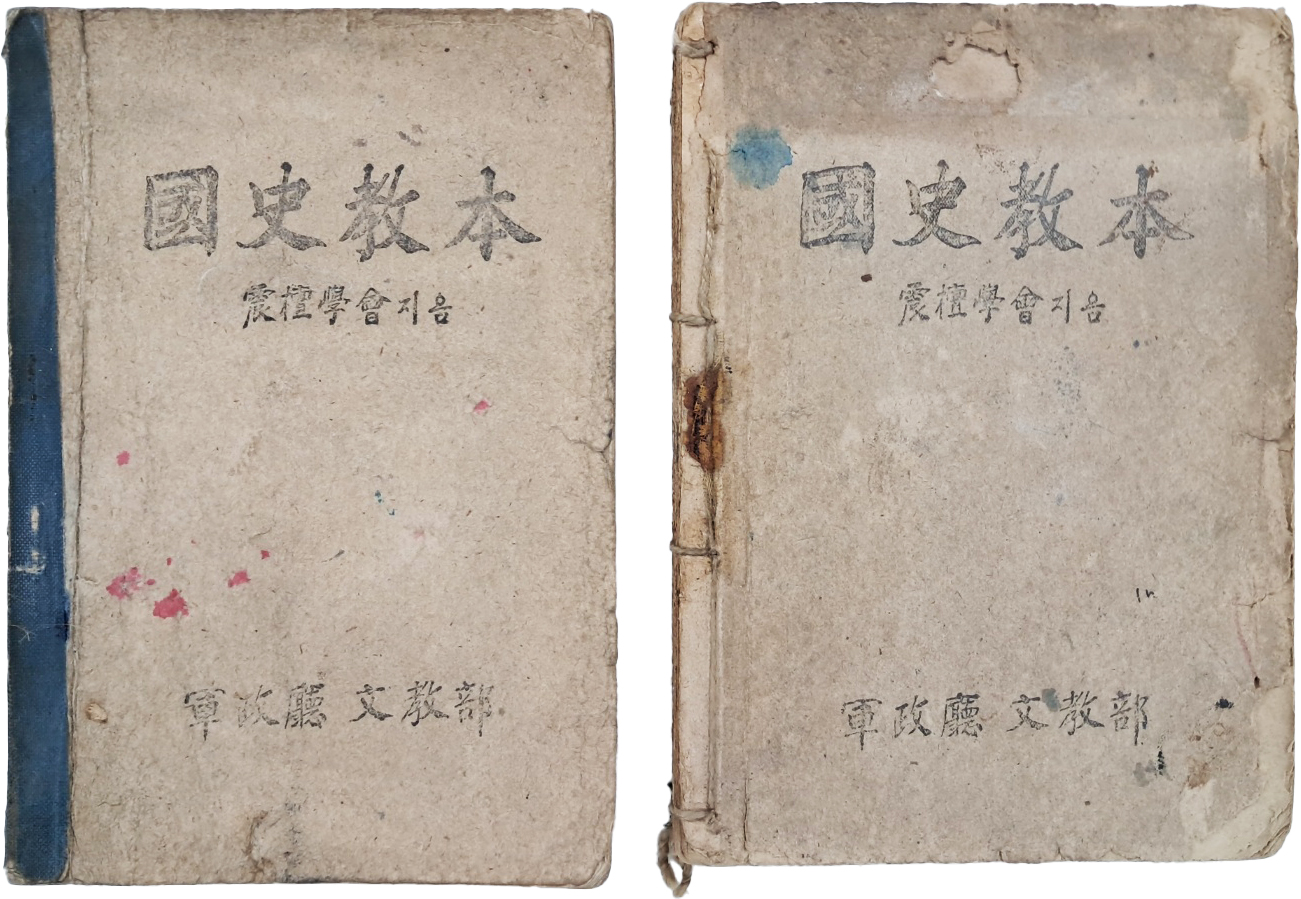 國史教本
震檀學會지음
軍政廳 文教部
國史教本
震檀學會지음
軍政廳 文教部